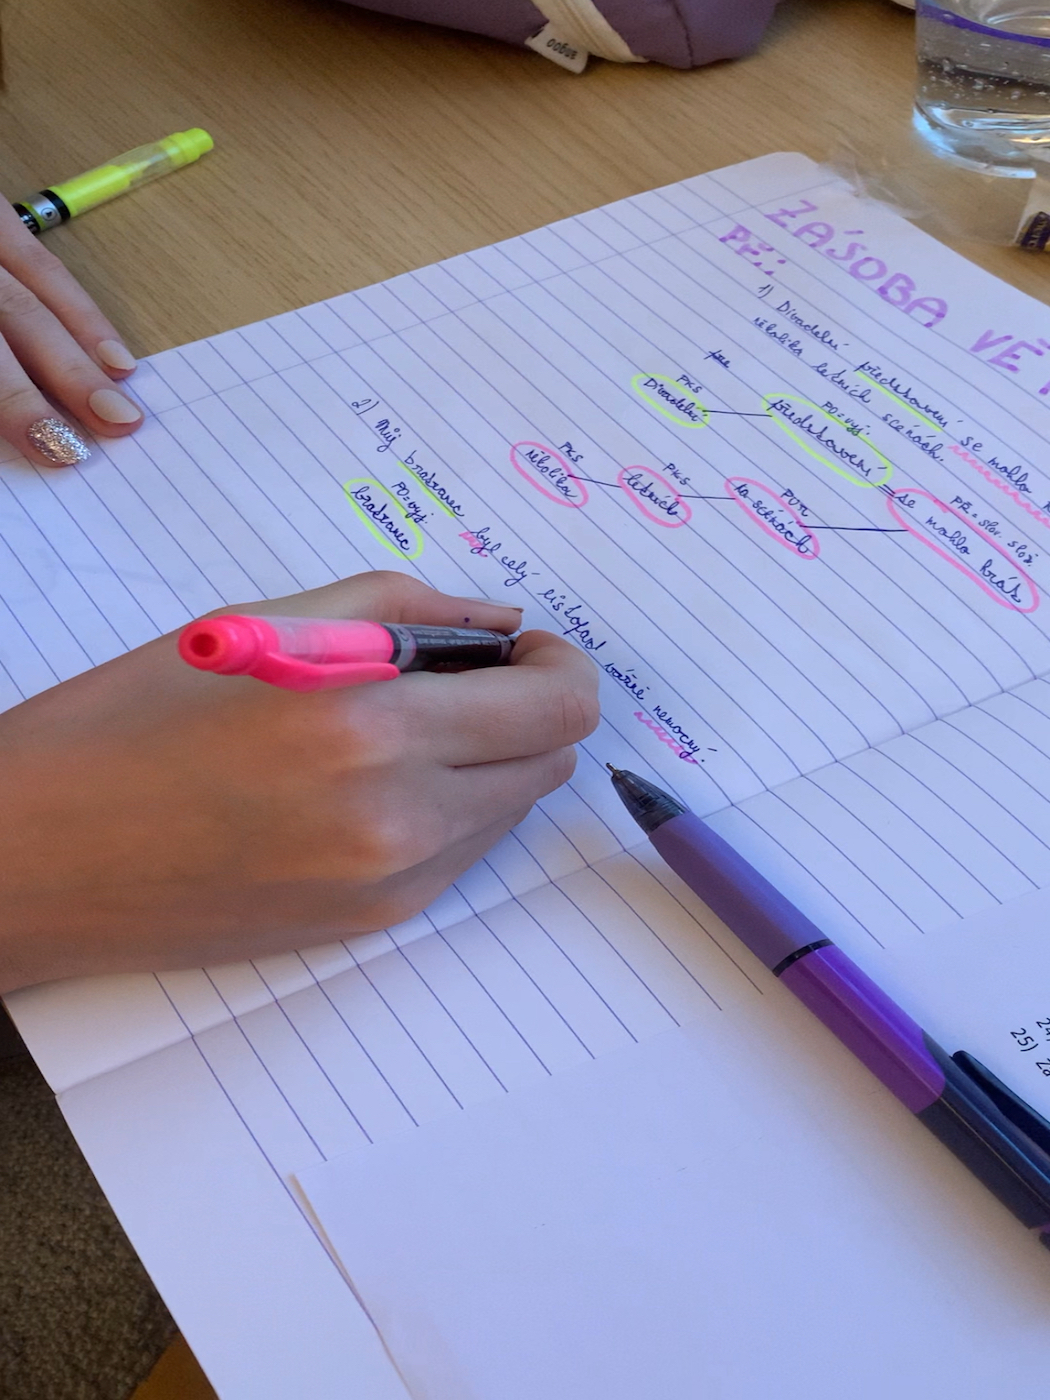 ZÁSOBA VĚ
Př.:
1) Divadelní představení se mohlo
několika letních scénách.
PKS
Divadelní
PO=vyj.
představení
PKS
několika
PKS
letních
PUM
na scénách
PŘ=slov. slož.
se mohlo hrát
2) Můj bratranec byl celý listopad vážně nemocný.
PO=vyj.
bratranec
25)